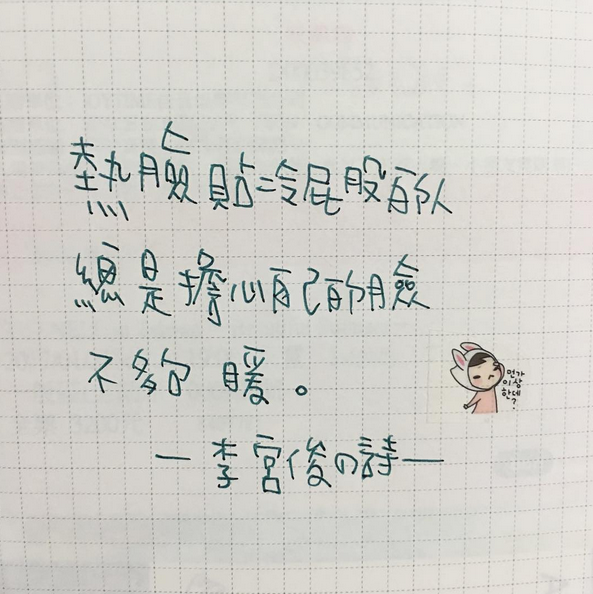 熱臉貼冷屁股的人
總是擔心自己的臉
不夠暖。
먼가
이상
한데
?
—李宮俊の詩—